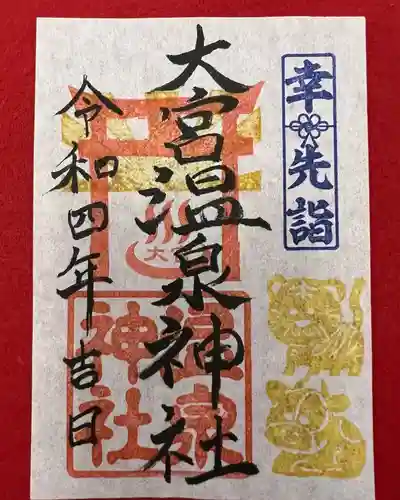 幸先詣
大宮温泉神社
令和四年吉日
温泉
神社